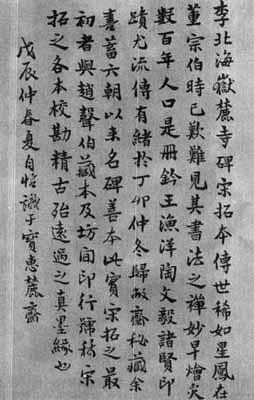 李北海嶽麓寺碑宋拓本傳世稀如星鳳在
董宗伯時已歎難見其書法之禪妙早燴炙
數百年人口是冊鈐王漁洋陶文毅諸賢印
蹟尤流傳有緒於丁卯仲冬歸敝齋秘藏余
喜蓄六朝以來名碑善本此實宋拓之最
初者與趙聲伯藏本及坊間印行號稱宋
拓之各本校勘精古殆遠過之真墨緣也
戊辰仲春夏自怡識于寶惠麓齋